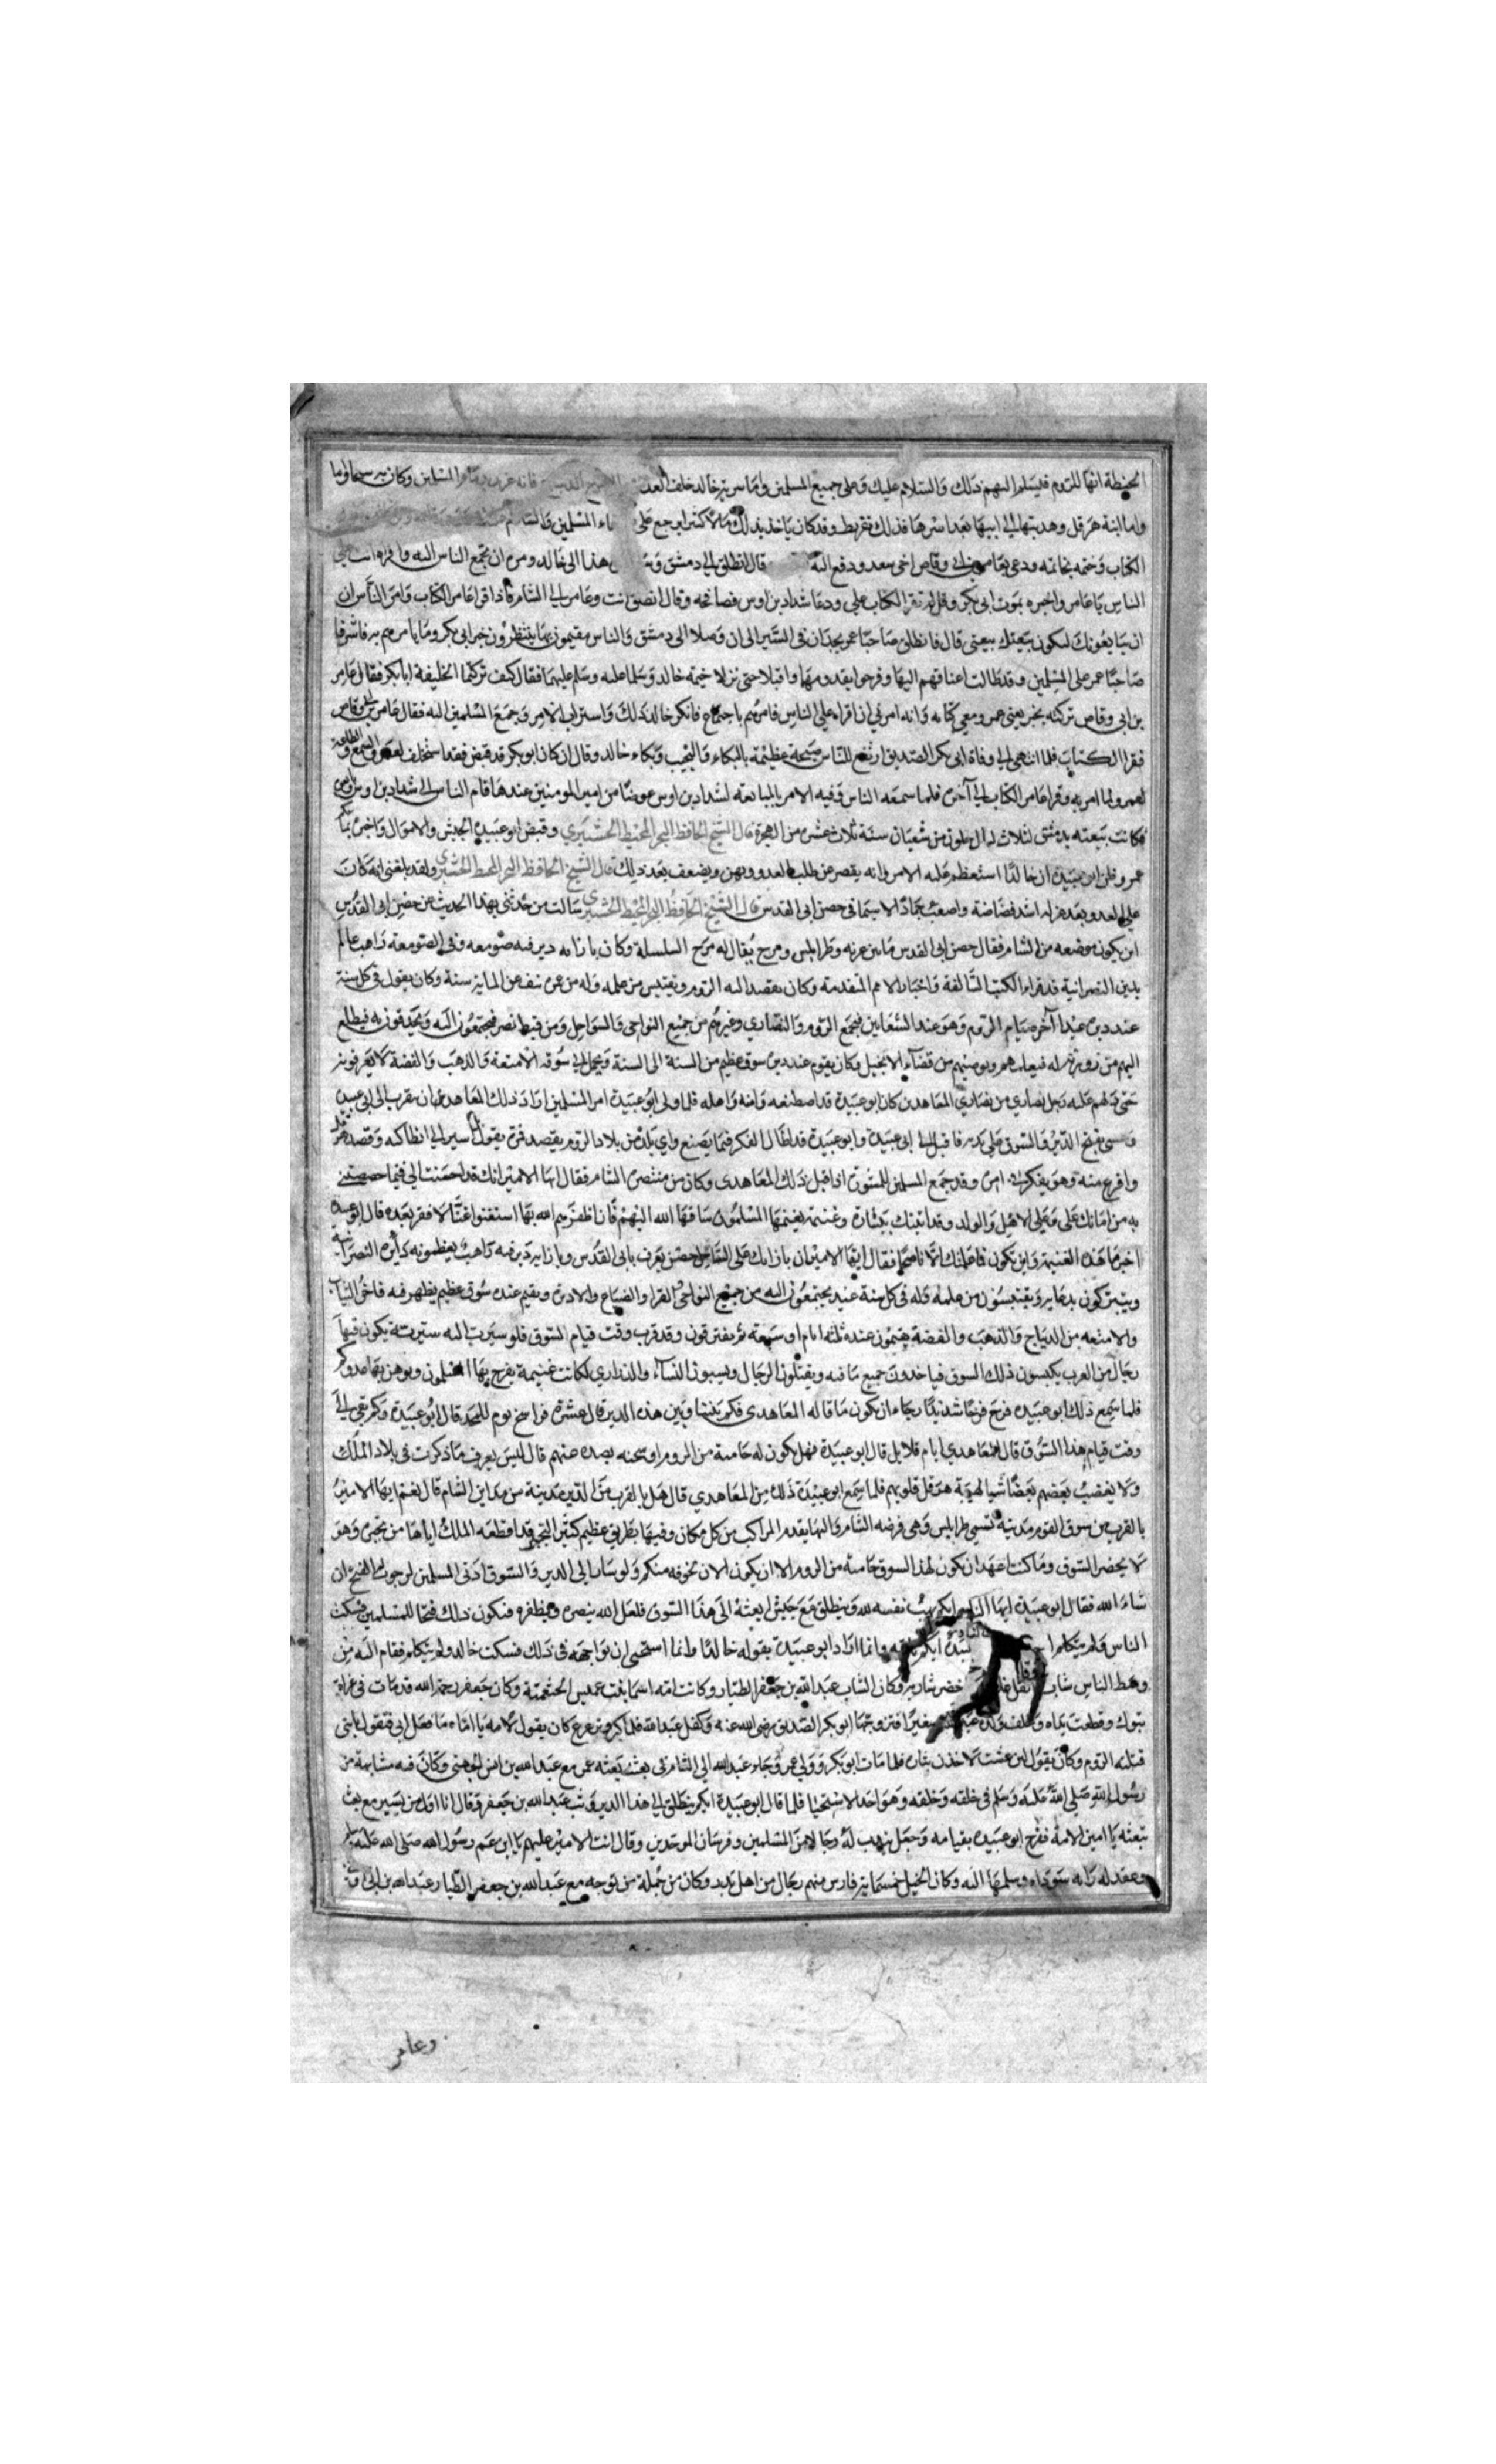 الحنطة انها للروم فيسلم اليهم ذلك والسلام عليك وعلى جميع المسلمين واما سرية خالد خلف العدو فانه غرر بدماء المسلمين وكان به سحا واما
واما ابنة هرقل وهديتها الى ابيها بعد اسرها فذلك تفريط وقد كان ياخذ بذلك مالا كثيرا يرجع على المسلمين والسلام
الكتاب وختمه بخاتمه ودعى بعامر بن ابي وقاص اخى سعد ودفع اليه قال انطلق الى دمشق هذا الى خالد ومره ان يجمع الناس اليه واقراه انت على
الناس يا عامر واخبره بموت ابى بكر وقل له يقرا الكتاب على ودعا شداد بن اوس فصافحه وقال انصق انت وعامر الى الشام فاذا قرا عامر الكتاب وامر الناس ان
ان يبايعونك لتكون بيعتك بيعتى قال فانطلق صاحبا عمر يجدان فى السير الى ان وصلا الى دمشق والناس مقيمون بها ينتظرون خبر ابى بكر وما يامرهم به فاشرفا
صاحبا عمر على المسلمين وقد طالت اعناقهم اليها وفرحوا بقدومهما واقبلا حتى نزلا خيمة خالد وسلما عليه وسلم عليهما فقال كيف تركتما الخليفة ابا بكر فقال عامر
بن ابى وقاص تركته بخير يعنى عمر ومعى كتابه وانه امرنى ان اقراه على الناس فامرهم باجتماع فانكر خالد ذلك واستراب الامر وجمع المسلمين اليه فقال عامر بن ابى وقاص
فقرا الكتاب فلما انتهى الى وفاة ابى بكر الصديق ارتفع للناس ضجة عظيمة بالبكاء والنحيب وبكاء خالد وقال ان كان ابو بكر قد قبض فقد استخلف لعمر والسمع والطاعة
لعمر ولما امر به وقرا عامر الكتاب الى آخره فلما سمعه الناس وفيه الامر بالمبايعة لشداد بن اوس عوضا من امير المومنين عندها قام الناس الى شداد بن اوس
فكانت بيعته بدمشق لثلاث ليال خلون من شعبان سنة ثلاث عشرة من الهجرة قال الشيخ الحافظ البحر المحيط وقبض ابو عبيدة الجيش والاموال
عمر وظن ابو عبيدة ان خالدا استعظم عليه الامر وانه يقصر عن طلب العدو ويهن ويضعف بعد ذلك قال الشيخ الحافظ البحر المحيط ولقد بلغنى انه كان
على العدو بعد عزله اشد فضاضة واصعب جهادا لا سيما فى حصن ابى القدس قال الشيخ الحافظ البحر المحيط سالت من حدثنى بهذا الحديث عن حصن ابى القدس
اين يكون موضعه من الشام فقال حصن ابى القدس ما بين عرقه وطرابلس ومرج يقال له مرج السلسلة وكان بازائه دير فيه صومعه وفى الصومعة راهب عالم
بدين النصرانية قد قراء الكتب السالفة واخبار الامم المتقدمة وكان يقصد اليه الروم ويقتبس من علمه وله من عمره نيف عن الماية سنة وكان يقوم فى كل سنة
عند ديره عيدا آخر صيام الروم وهو عند الشعانين فيجتمع الروم والنصارى وغيرهم من جميع النواحى والسواحل ومن قبط مصر فيجتمعون اليه ويحدقون به فيطلع
اليهم من ذروة له فيعلمهم ويوصيهم من قضاء الانجيل وكان يقوم عند ديره سوق عظيم من السنة الى السنة ويحمل الى سوقه الامتعة والذهب والفضة
دلهم عليه رجل نصارى من نصارى المعاهدين كان ابو عبيدة قد اصطنعه وامنه واهله فلما ولى ابو عبيدة امر المسلمين اراد ذلك المعاهد ان يتقرب الى ابى عبيدة
بفتح الدير والسوق على يديه فاقبل الى ابى عبيدة وابو عبيدة قد اطال الفكر فيما يصنع واى بلد من بلاد الروم يقصد فمرة يقول اسير الى انطاكيه
وافرغ منه وهو يفكر فى امره وقد جمع المسلمين للمشورة اذ اقبل ذلك المعاهدى وكان من منتصره الشام فقال ايها الامير انك قد احسنت الى فيما خصصتنى
به من امانك على وعلى الاهل والولد وقد اتيتك ببشارة وغنيمة يغنمها المسلمون ساقها الله اليهم فان اظفرهم الله بها استغنوا غنا لا فقر بعده قال ابو عبيدة
اخبر ما هذه الغنيمة واين تكون فما علمتك الا ناصحا فقال ايها الامير ان بازائك على الساحل حصن يعرف بابى القدس وبازايه دير فيه راهب يعظمونه دايرة النصرانية
ويتبركون بدعايه ويقتبسون من علمه وله فى كل سنة عيد يجتمعون اليه من جميع النواحى القرا والضياع والاديرة ويقيم عنده سوق عظيم يظهر فيه فاخر الثياب
والامتعه من الديباج والذهب والفضة يقيمون عنده ثلثه ايام او سبعة ثم يفترقون وقد قرب وقت قيام السوق فلو سيرت اليه سرية يكون فيها
رجال من العرب يكبسون ذلك السوق فياخذون جميع ما فيه ويقتلون الرجال ويسبون النسآء والذرارى لكانت غنيمة يفرح بها المسلمون ويوهن بها عدوكم
فلما سمع ذلك ابو عبيدة فرح فرحا شديدا رجاء ان يكون ما قاله المعاهدى فكم بيننا وبين هذه الدير قال عشرة فراسخ يوم للمجد قال ابو عبيدة وكم بقى الى
وقت قيام هذا السوق قال المعاهدى ايام قلايل قال ابو عبيدة فهل يكون له حامية من الروم قال ليس يعرف ما ذكرت فى بلاد الملك
ولا يغضب بعضهم بعضا شيا لهيبة هرقل قلوبهم فلما سمع ابو عبيدة ذلك من المعاهدى قال هل بالقرب من الدير مدينة من مداين الشام قال نعم ايها الامير
بالقرب من سوق القوم مدينة تسمى طرابلس وهى فرضه الشام واليها يقدم المراكب من كل مكان وفيها بطريق عظيم كثير التجبر قد اقطعه الملك اياها من تجبره وهو
لا يحضر السوق وما كنت اعهد ان يكون لهذا السوق حامية من الروم الا ان يكون الان لخوفه منكم ولو سار الى الدير والسوق ادنى المسلمين لرجوت الفتح ان
شاء الله فقال ابو عبيدة ايها الناس ايكم يهب نفسه لله وينطلق مع جيش ابعثه الى هذا السوق فلعل الله ينصره ويظفره فيكون ذلك فتحا للمسلمين فسكت
الناس ولم يتكلم احد وانما اراد ابو عبيدة بقوله خالدا وانما استحيى ان يواجهه فى ذلك فسكت خالد ولم يتكلم فقام اليه من
وسط الناس شاب اخضر شاربه وكان الشاب عبد الله بن جعفر الطيار وكانت امه اسما بنت عميس الخثعمية وكان جعفر رحمه الله قد مات فى غزاة
تبوك وقطعت يداه وخلف ولده صغيرا فتزوجها ابو بكر الصديق رضى الله عنه وكفل عبد الله فلما كبر وترعرع كان يقول لامه يا اماه ما فعل ابى فتقول يا بنى
قتلته الروم وكان يقول لئن عشت لاخذن بثاره فلما مات ابو بكر وولى عمر وجاء عبد الله الى الشام فى بعث بعثه عمر مع عبد الله بن انس الجهنى وكان فيه مشابهة من
رسول الله صلى الله عليه وسلم فى خلقه وخلقه وهو احد الاسخياء فلما قال ابو عبيدة ايكم ينطلق الى هذا الدير وثب عبد الله بن جعفر وقال انا اول من يسير مع بعث
تبعثه يا امين الامة ففرح ابو عبيدة بقيامه وجعل يندب له رجالا من المسلمين وفرسان الموحدين وقال انت الامير عليهم يا ابن عم رسول الله صلى الله عليه وسلم
وعقد له راية سوداء وسلمها اليه وكان الخيل خمسماية فارس منهم رجال من اهل بدر وكان من جملة من توجه مع عبد الله بن جعفر الطيار عبد الله بن ابى
وعامر